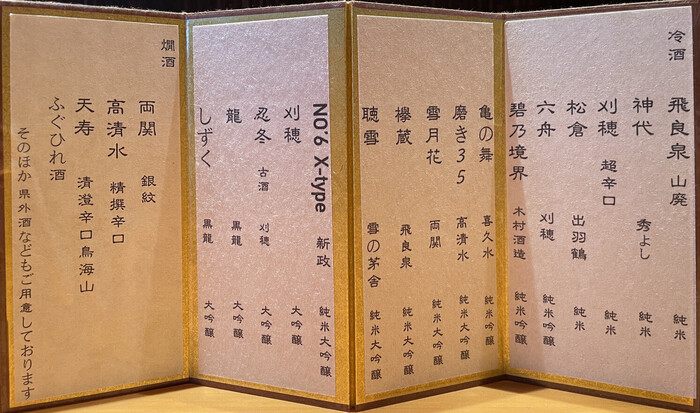 冷酒
飛良泉 山廃 純米
神代 秀よし 純米
刈穂 超辛口 純米
松倉 出羽鶴 純米
六舟 刈穂 純米吟醸
碧乃境界 木村酒造 純米吟醸
亀の舞 喜久水 純米吟醸
磨き35 高清水 純米大吟醸
雪月花 両関 純米大吟醸
欅蔵 飛良泉 純米大吟醸
聴雪 雪の茅舎 純米大吟醸
NO'6 X-type 新政 純米大吟醸
刈穂 大吟醸
忍冬 古酒 刈穂 大吟醸
龍 黒龍 大吟醸
しずく 黒龍 大吟醸
燗酒
両関 銀紋
高清水 精撰辛口
天寿 清澄辛口鳥海山
ふぐひれ酒
そのほか県外酒などもご用意しております